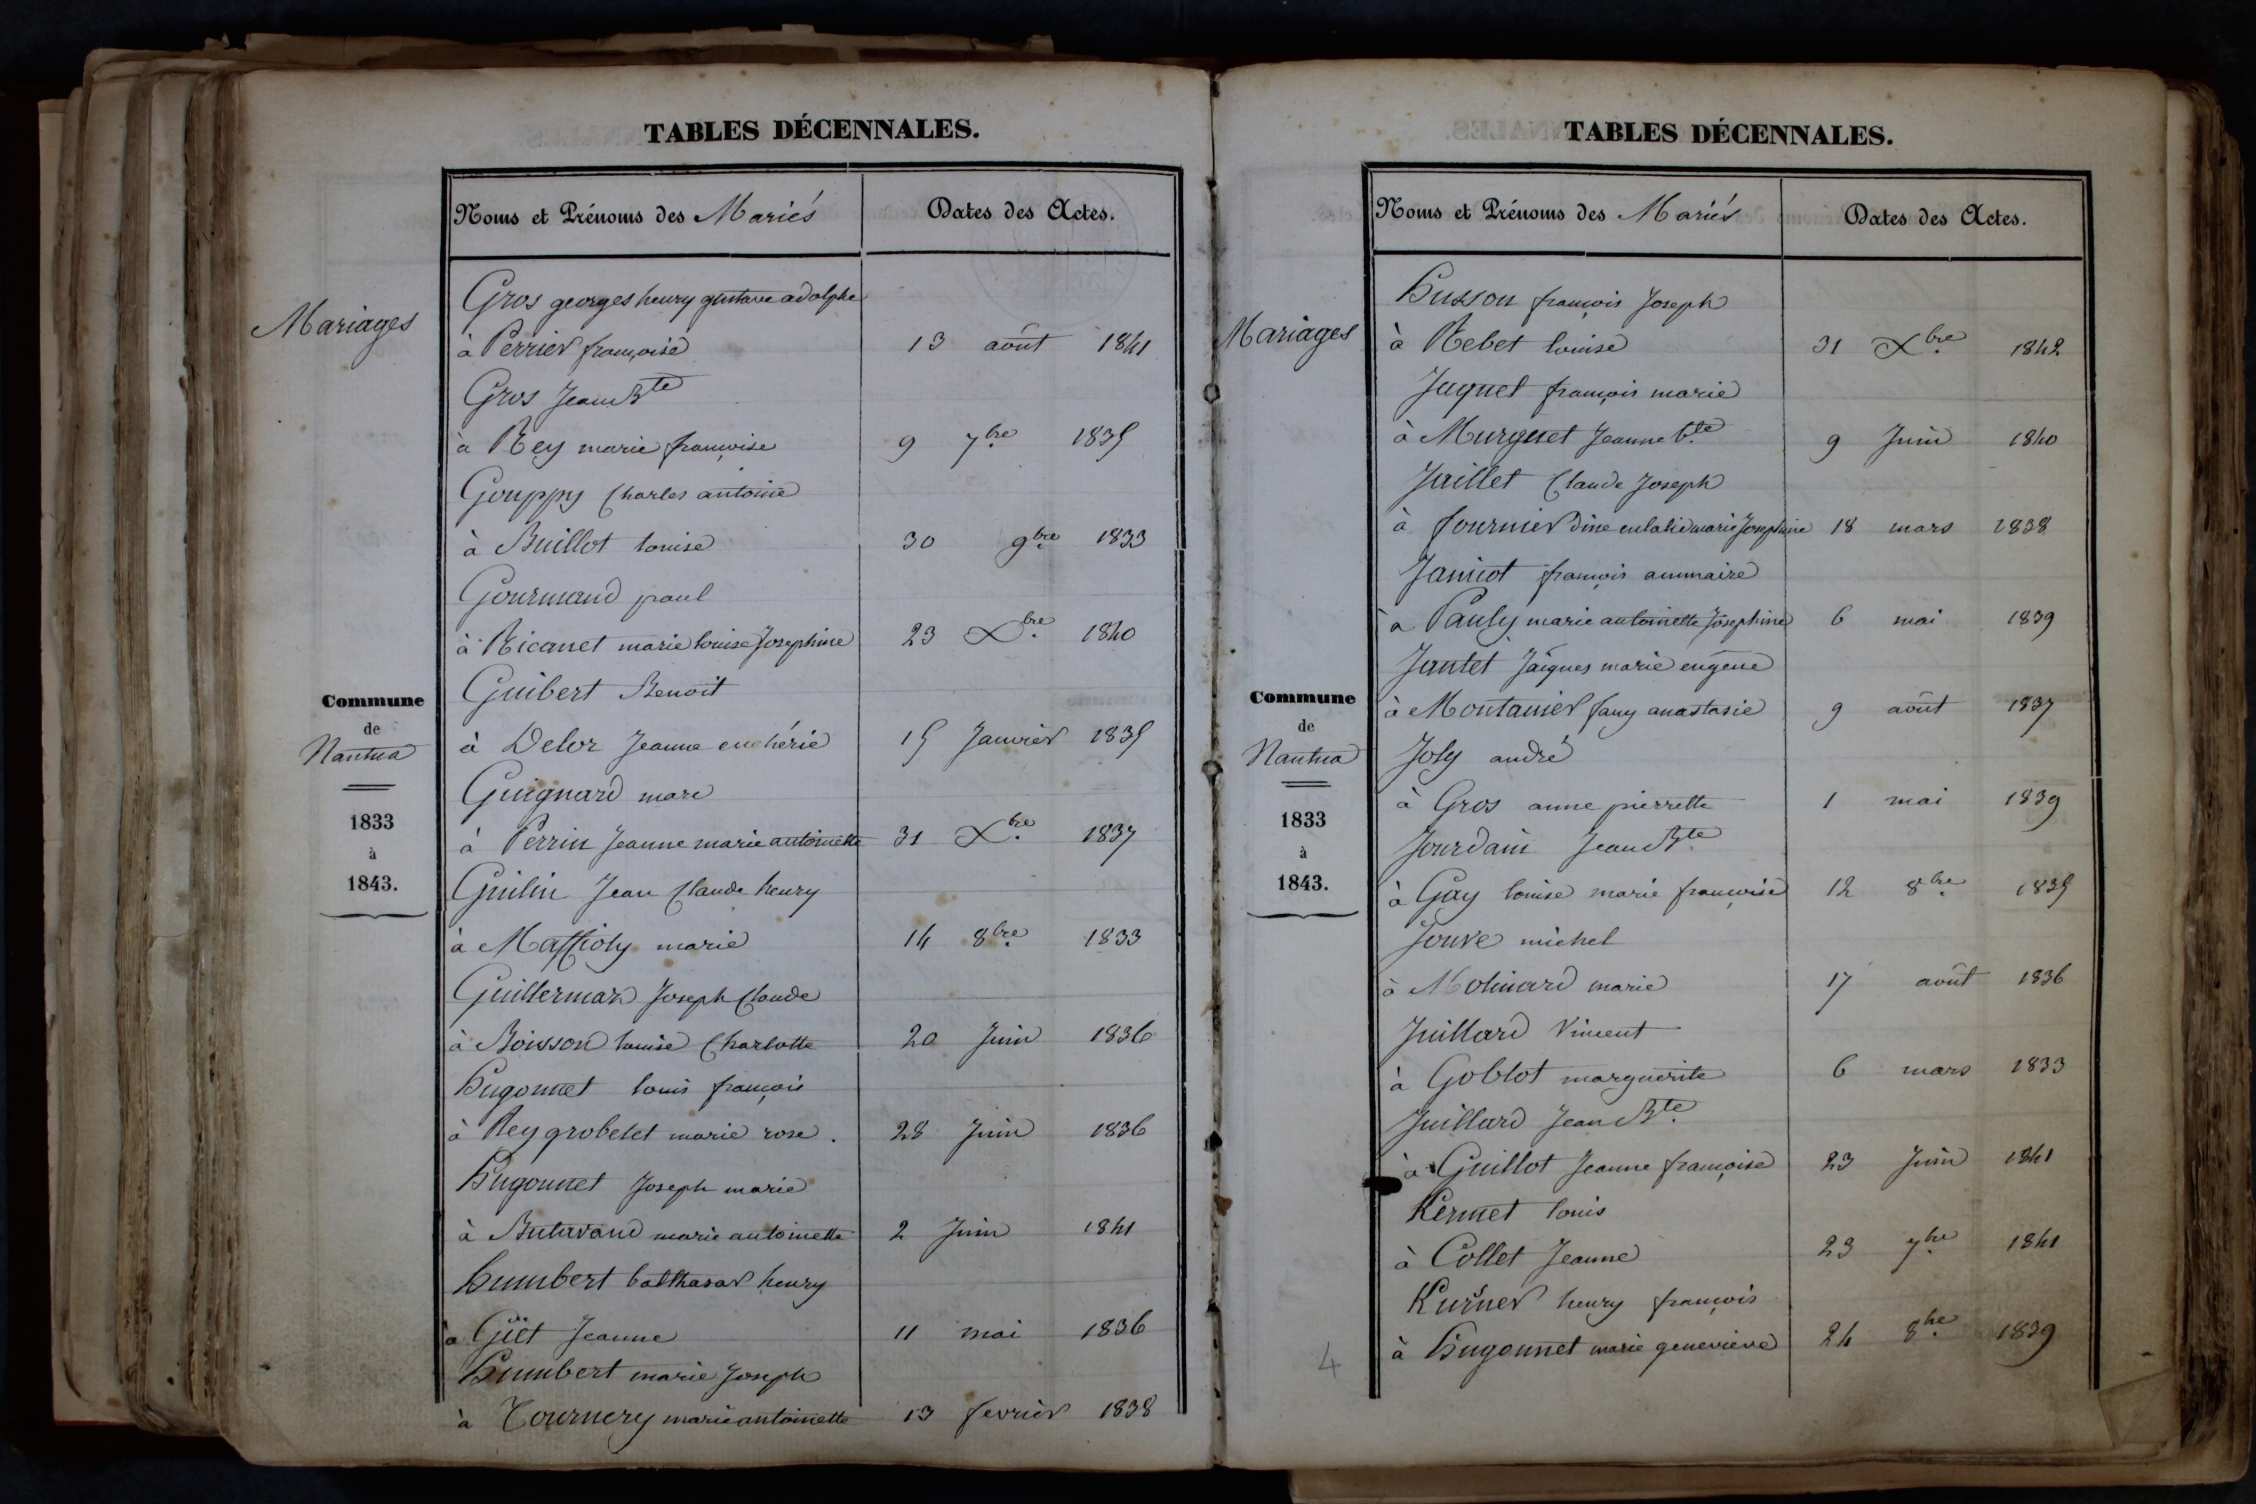 TABLES DÉCENNALES.
Noms et Prénoms des Mariés
Dates des Actes.
Mariages
Commune
de
Nantua
1833
à
1843.
Gros georges henry gustave adolphe
à Perrier françoise 13 août 1841
Gros Jean Bte
à Rey marie françoise 9 7bre 1835
Gouppy Charles antoine
à Buillot louise 30 9bre 1833
Gourmand paul
à Ricanet marie louise Josephine 23 Xbre 1840
Guibert Benoit
à Delor Jeanne euchérie 15 Janvier 1835
Guignard marc
à Perrin Jeanne marie antoinette 31 Xbre 1837
Guilin Jean Claude henry
à Maffioly marie 14 8bre 1833
Guillermaz Joseph Claude
à Boisson louise Charlotte 20 Juin 1836
hugonnet louis françois
à Reygrobelet marie rose. 28 Juin 1836
hugonnet Joseph marie
à Butavand marie antoinette 2 Juin 1841
humbert balthasar henry
à Güet Jeanne 11 mai 1836
humbert marie Joseph
à Tournery marie antoinette 13 fevrier 1838
TABLES DÉCENNALES.
Noms et Prénoms des Mariés
Dates des Actes.
Mariages
Commune
de
Nantua
1833
à
1843.
husson françois Joseph
à Rebet louise 31 Xbre 1842
Jaquet françois marie
à Murguet Jeanne bte 9 Juin 1840
Jaillet Claude Joseph
à fournier dine eulalie marie Josephine 18 mars 1838
Janiot françois ammaire
à Pauly marie antoinette Josephine 6 mai 1839
Jantet Jaques marie eugene
à Montanier fany anastasie 9 août 1837
Joly andré
à Gros anne pierrette 1 mai 1839
Jourdain Jean Bte
à Gay louise marie françoise 12 8bre 1835
Jouve michel
à Molinard marie 17 août 1836
Juillard Vincent
à Goblot marguerite 6 mars 1833
Juillard Jean Bte
à Guillot Jeanne françoise 23 Juin 1841
Kermet louis
à Collet Jeanne 23 7bre 1841
Kurner henry françois
à hugonnet marie genevieve 24 8bre 1839
4